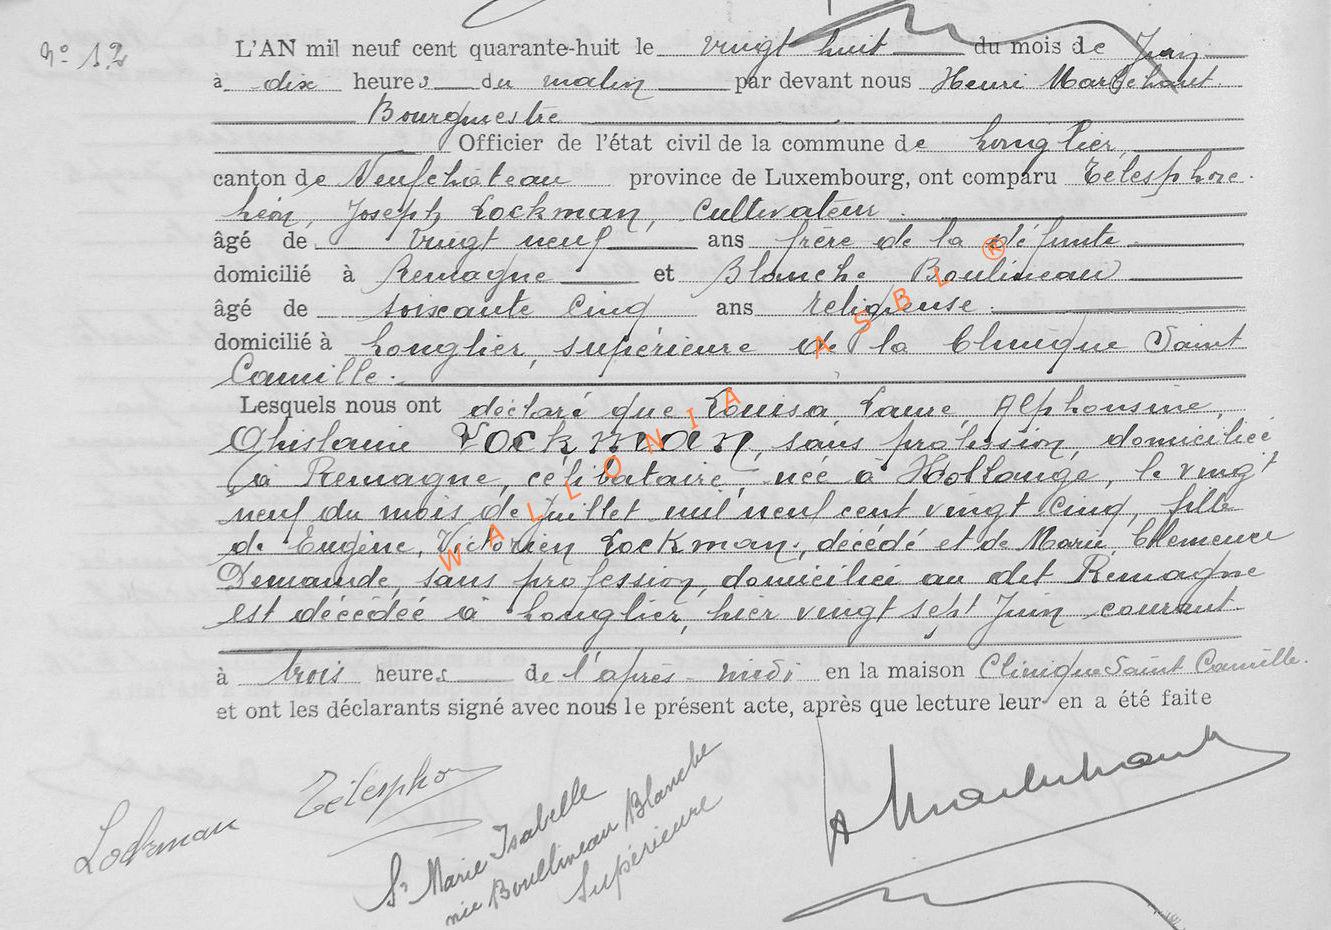 N° 12
L'AN mil neuf cent quarante-huit le vingt huit du mois de Juin
à dix heures du matin par devant nous Henri Marchant
Bourgmestre
Officier de l'état civil de la commune de Longlier
canton de Neufchâteau province de Luxembourg, ont comparu Télesphore
Léon, Joseph Lockman, cultivateur
âgé de vingt neuf ans frère de la défunte
domicilié à Remagne et Blanche Boulineau
âgé de soixante cinq ans religieuse
domicilié à Longlier, supérieure de la Clinique Saint
Camille.
Lesquels nous ont déclaré que Louisa Laure, Alphonsine,
Ghislaine Lockman, sans profession, domiciliée
à Remagne, célibataire, née à Hollange, le vingt
neuf du mois de Juillet mil neuf cent vingt cinq, fille
de Eugène, Victorien Lockman, décédé et de Marie, Clémence
Demande, sans profession, domiciliée au dit Remagne
est décédée à Longlier, hier vingt sept Juin courant
à trois heures de l'après-midi en la maison Clinique Saint Camille.
et ont les déclarants signé avec nous le présent acte, après que lecture leur en a été faite
Lockman Télespho
Sr Marie Isabelle
née Boullineau Blanche
Supérieure
H Marchant
WALLONIA ASBL ®